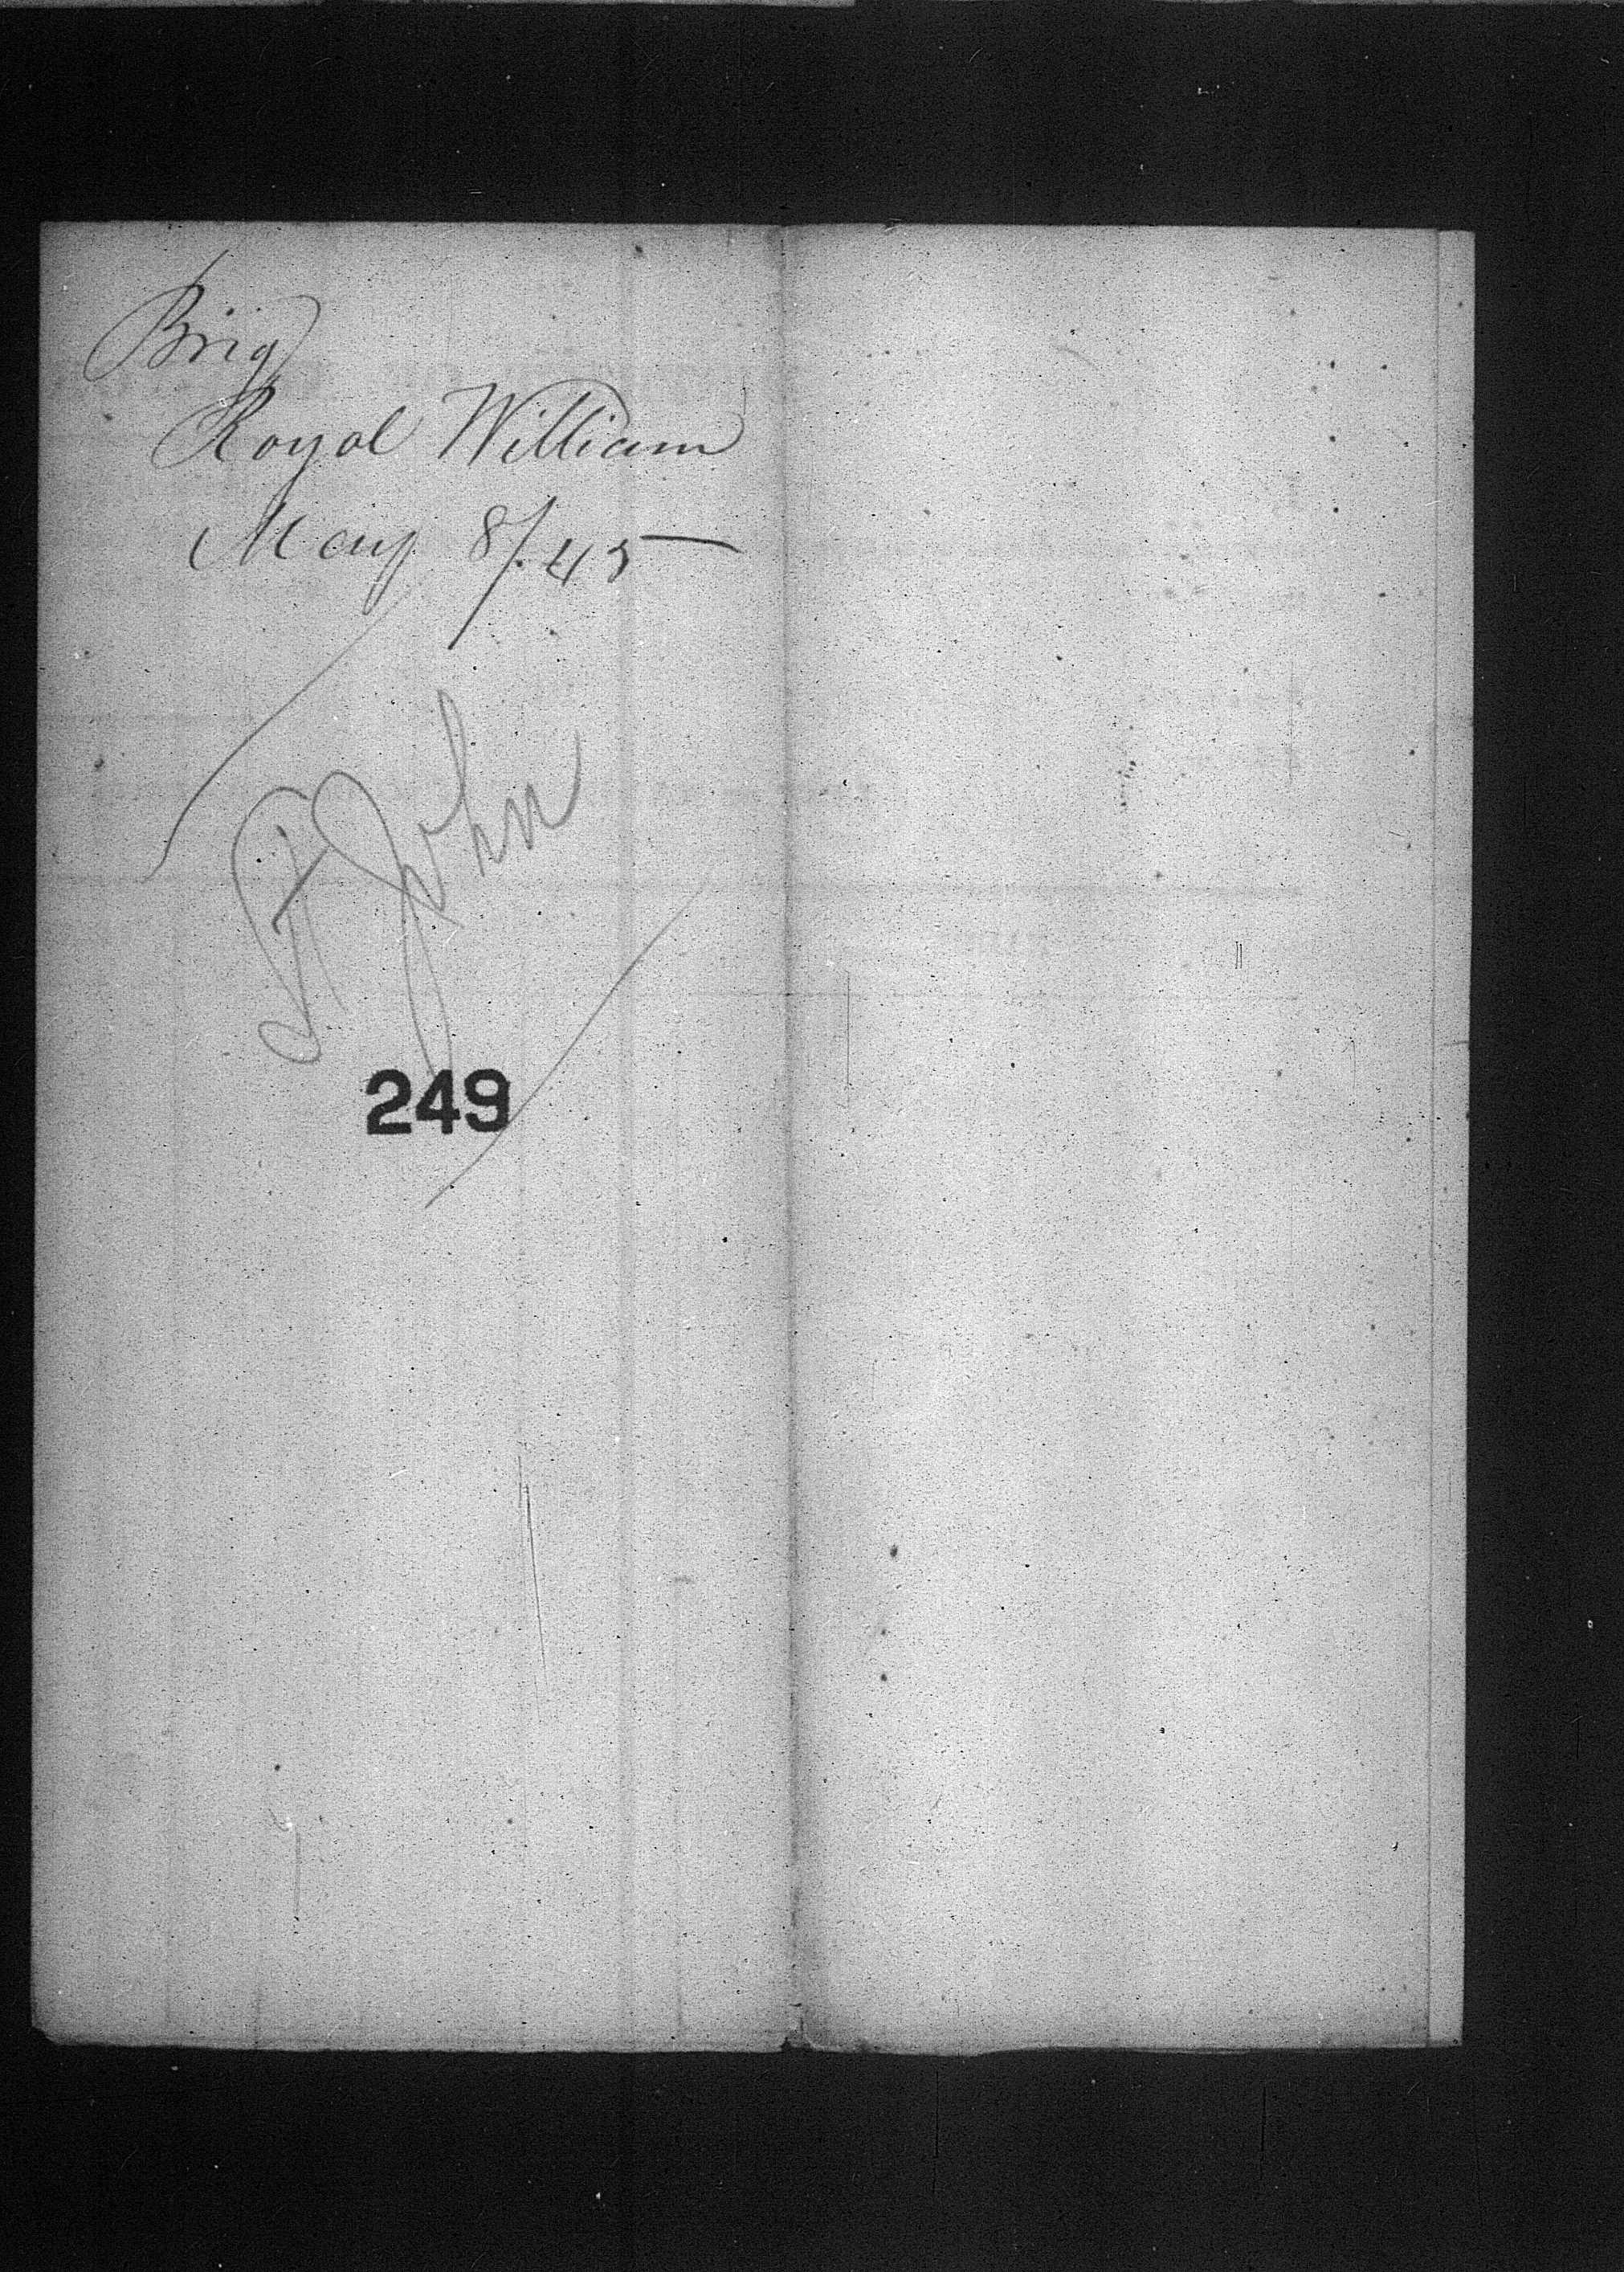 Brig
Royal William
May 8/.45
St John
249